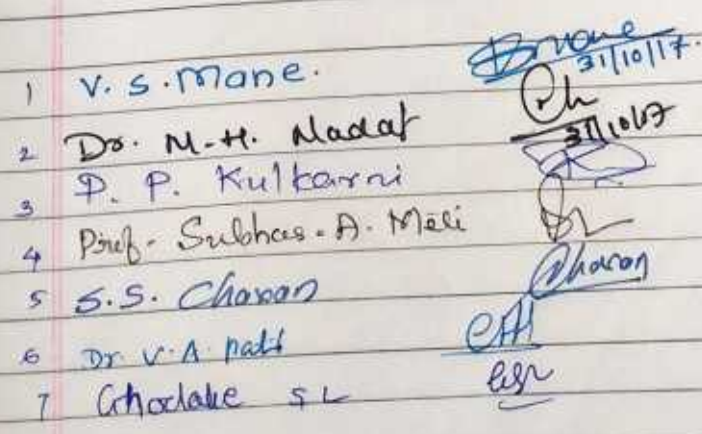 1 V. S. Mane. 31/10/17.
2 Dr. M. H. Nadaf 31/10/17
3 P. P. Kulkarni
4 Prof. Subhas. A. Meli
5 S. S. Chavan Chavan
6 Dr V. A. patil
7 Ghodake S L